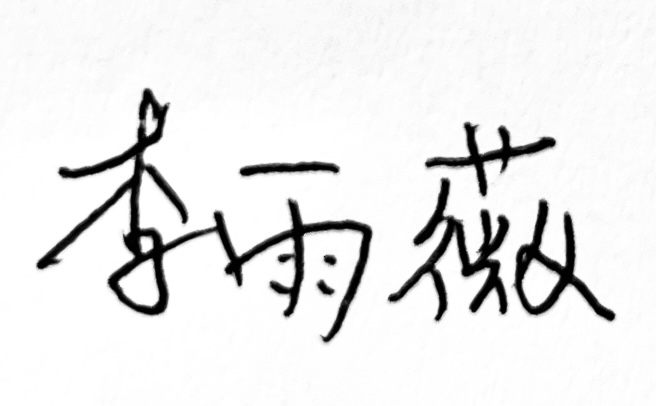 李雨薇